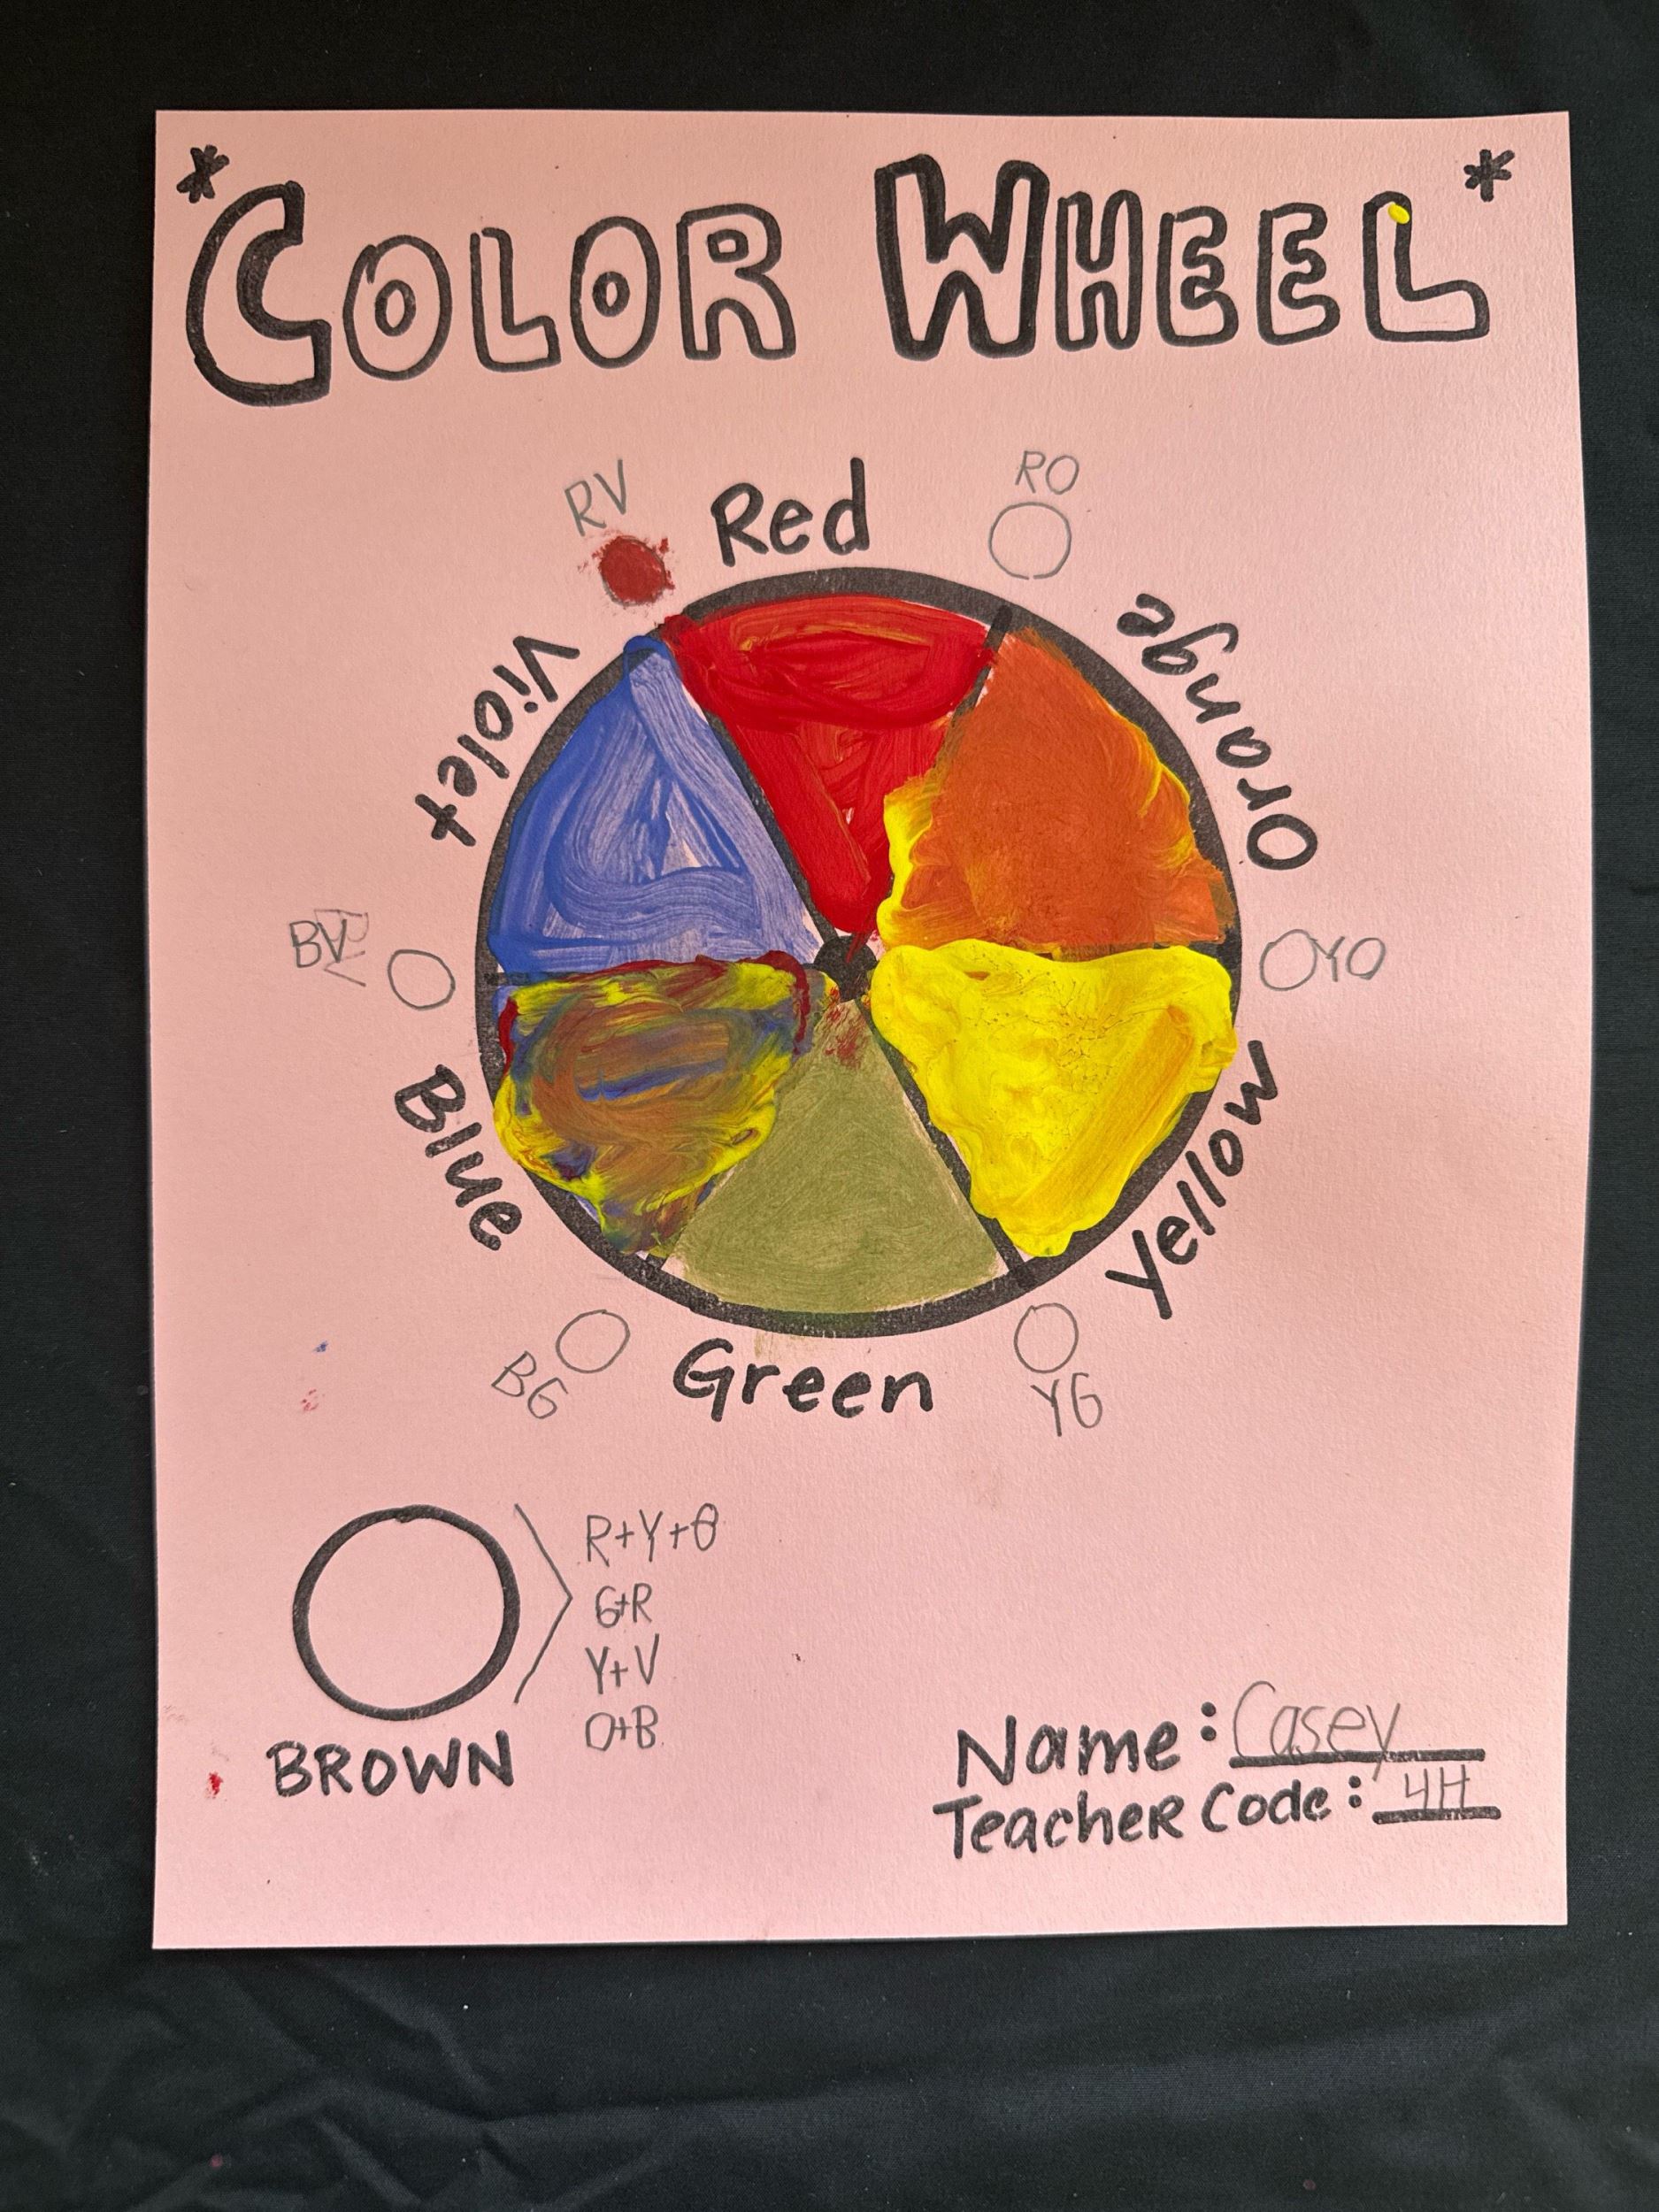 * COLOR WHEEL *
RV
Red
RO
Orange
Violet
YO
Blue
Yellow
BG
Green
YG
R+Y+B
G+R
Y+V
O+B
BROWN
Name: Casey
Teacher Code: 4H